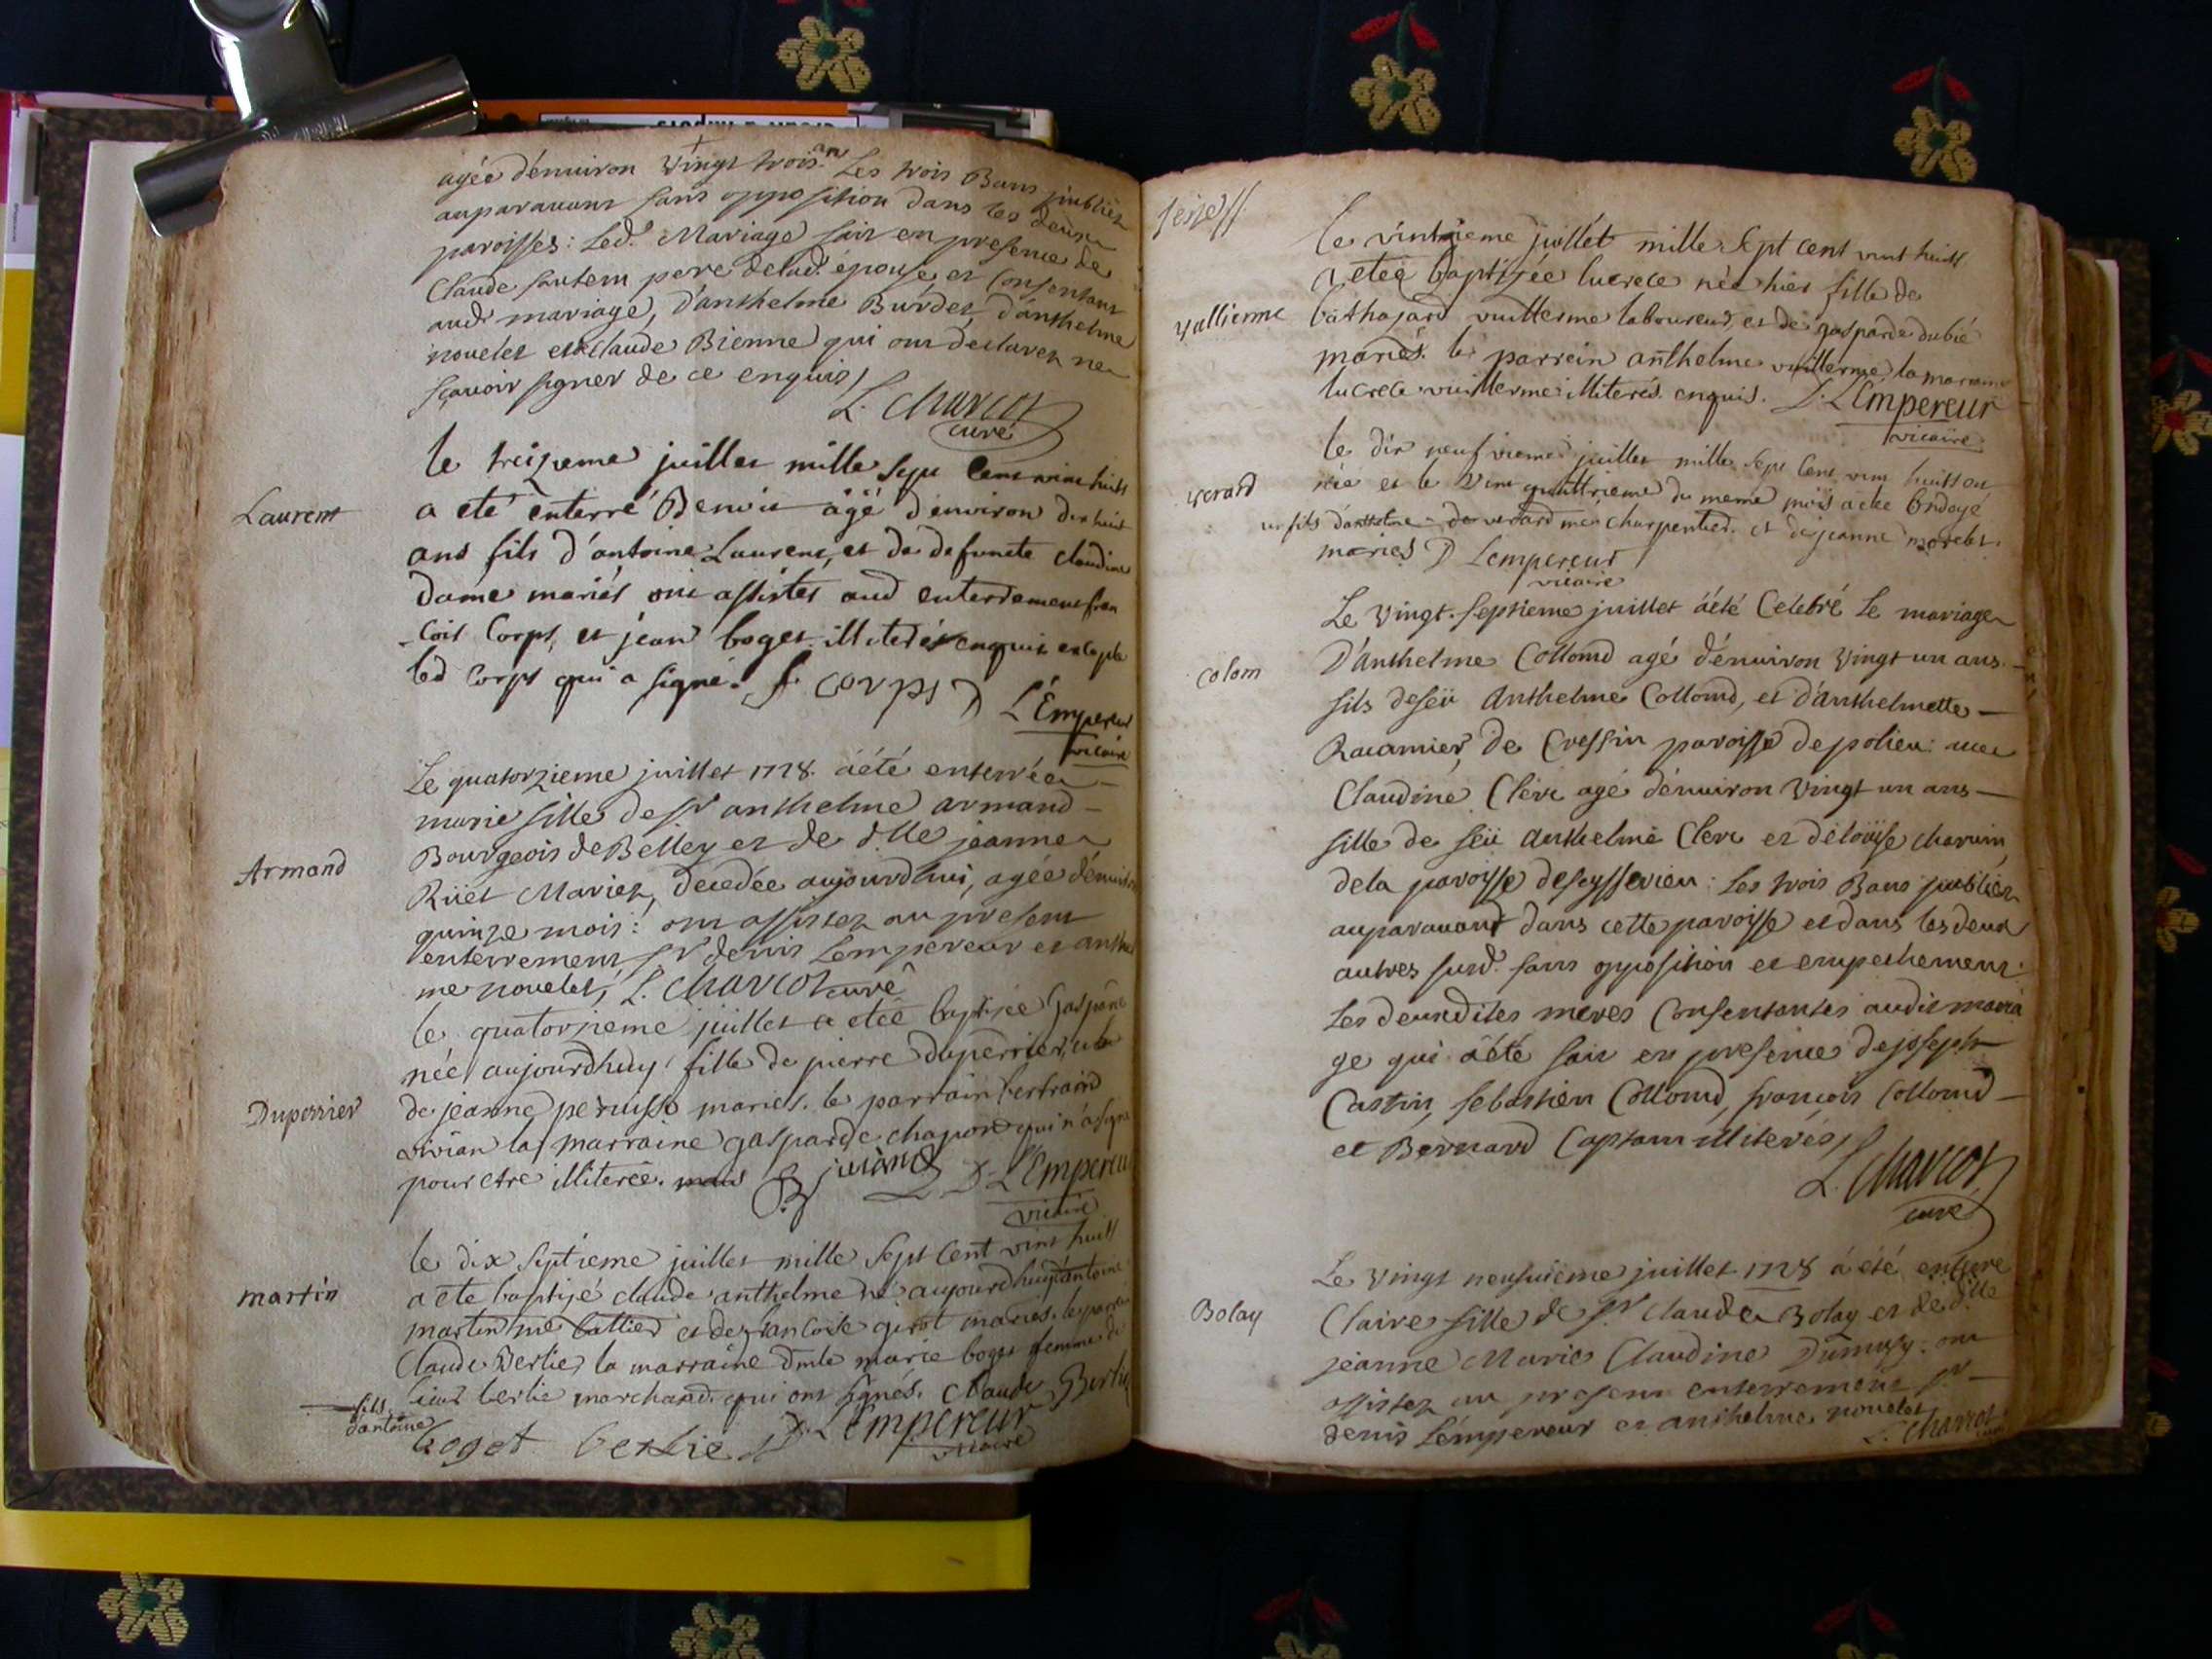 agée d'enuiron vingt trois ans Les trois Bans publiez
auparauant sans opposition dans les deux
paroisses: Led. Mariage fait en presence de
Claude sautem pere delad. épouse et Consentant
aud. mariage, d'anthelme Burdet, d'anthelme
nouelet et Claude Bienne qui ont declarez ne
sçauoir signer de ce enquis
L. Charcot
curé
Laurent
le treizeme juillet mille sept cent vint huit
a eté enterré Benoit âgé d'environ dix huit
ans fils d'antoine Laurent, et de defuncte claudine
dame mariés ont assistes aud enterrement fran
-cois Corps, et jean boget illiterés enquis excepte
led Corps qui a signé. f. corps D L'Empereur
vicaire
Armand
Le quatorzieme juillet 1728. a été enterrée
marie fille de sr anthelme armand
Bourgeois de Belley et de d.lle jeanne
Rüet Mariez, decedée aujourdhui, agée d'enuiron
quinze mois: ont assistez au present
enterrement sr denis Lempereur et anthel
me nouelet, L. Charcot curé
Duperrier
le quatorzieme juillet a eteé baptisée Gasparde
née aujourdhuy fille de pierre duperrier, et
de jeanne peruisse mariés. le parrain bertrand
vivian la marraine gasparde chapon qui n'a signé
pour etre illiterée. B juiane D. L'Empereur
vicaire
martin
le dix septieme juillet mille sept cent vint huit
a ete baptizé claude anthelme né aujourdhuy d'antoine
martin me Cattier et de francoise girot mariés. le parrain
Claude Berlie, la marraine dmle marie boget femme de
sieur berlie marchand. qui ont signés. Claude Berlie
fils
dantoine
boget berlie D. L'Empereur
vicaire
seize//
le vintieme juillet mille sept cent vint huit
a etee baptisée lucrece née hier fille de
vallierme
balthasard vuillerme laboureur, et de gasparde dubié
mariés. le parrein anthelme vuillerme la maraine
lucrece vuillerme illiterés enquis. D. L'Empereur
vicaire
verard
le dix neuf vieme juillet mille sept cent vint huit on
né et le vint quattrieme du meme mois a ete ondoyé
un fils d'anthelme de verard me charpentier. et de jeanne morelet.
mariés D Lempereur
vicaire
Colom
Le vingt-septieme juillet a été Celebré Le mariage
D'anthelme Collomd agé d'enuiron vingt un ans
fils defeü Anthelme Collomd, et d'anthelmette
Racamier, de Cressin paroisse de polieu: auec
Claudine Clerc agé d'enuiron vingt un ans
fille de feü Anthelme Clerc et de loüise charuin
dela paroisse deseysserieu: Les trois Bans publiez
auparauant dans cette paroisse et dans les deux
autres susd. sans opposition et empechement:
Les deux dites meres Consentantes audit maria
ge qui a été fait en presence de joseph
Castin, sebastien Collomd, françois Collomd
et Bernard Captam illiterés,
L. Charcot
curé
Bolay
Le Vingt neufuieme juillet 1728 a été enterré
Claire fille de Sr. Claude Bolay et de d.lle
jeanne Marie Claudine Dumuzy: ont
assistez au present enterrement Sr
denis L'empereur et anthelme nouelet
L. Charcot